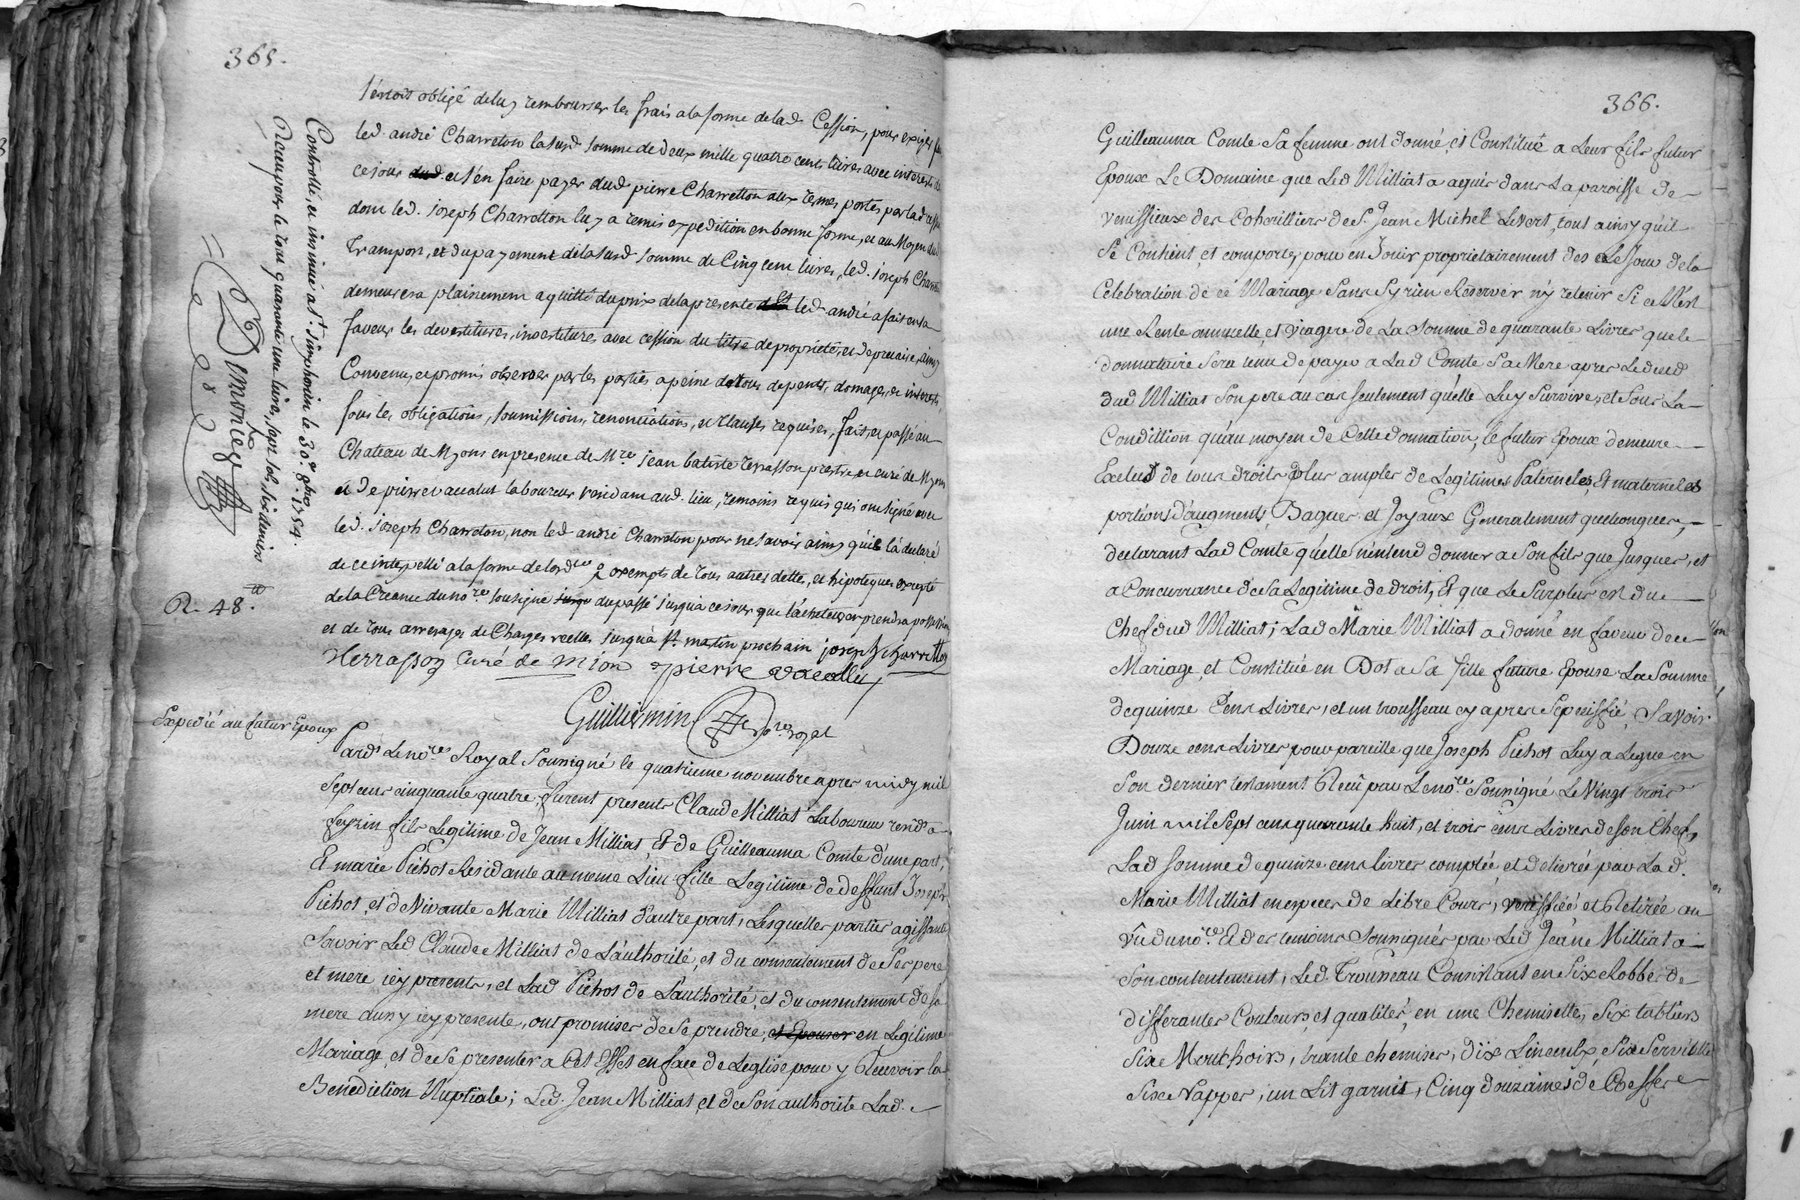 365.
s'étoit obligé de luy rembourser les frais a la forme de lad. Cession, pour exiger
led. andré Charreton la susd. somme de deux mille quatre cents livres avec interests
ce jour et s'en faire payer dud. pierre Charretton aux termes portés par lad.
dont led. joseph Charretton luy a remis expedition en bonne forme, et au Moyen dud.
Transport, et du payement de la susd. somme de Cinq cent livres, led. joseph
demeurera plainement aquitté du prix de la presente led. andré a fait en sa
faveur les devestitures, investitures, avec cession du titre de proprieté, et de precaire, ainsy
Convenu, et promis observer par les parties a peine de tous depents, domages, et interests,
sous les obligations, soumissions, renonciations, et clauses requises, fait, et passé au
Chateau de Myons en presence de Mre. jean batiste terrasson prestre et curé de Myons
et de pierre vacalut laboureur residant aud. lieu, temoins requis qui ont signé avec
led. joseph Charreton, non led. andré Charreton pour ne savoir ainsy qu'il l'a declaré
de ce interpellé a la forme de l'ordce. exempts de tous autres dettes, et hipoteques excepté
de la Creance du nore. sousigné jusqu du passé jusqu'a ce jour que l'acheteur prendra possession
et de tous arrerages de Charges reelles jusqu'a st. matin prochain joseph charretton
Terrasson curé de mion pierre vacallut
Guilliermin nore. royal
Controllé, et insinué a St. Simphorin le 30e. 8bre 1754.
Reçu pour le tout quarante une livre, sept sols, six deniers
Demontez
R. 48.tt
Expedié au futur Epoux
Pard. Le nore. Royal Sousigné le quatrieme novembre apres midy mil
sept cens cinquante quatre furent presents Claud Milliat Laboureur resid. a
feyzin fils Legitime de Jean Milliat, Et de Guilleauma Comte d'une part,
Et marie Pichot Residante au meme Lieu fille Legitime de deffunt Joseph
Pichot, et de Vivante Marie Milliat d'autre part, Lesquelles parties agissants
Savoir Led. Claude Milliat de L'authorité, et du consentement de Ses pere
et mere icy presents, et Lad. Pichot de L'authorité, et du consentement de sa
mere aussy icy presente, ont promises de Se prendre, et Epouser en Legitime
Mariage, et de Se presenter a Cet Effet en face de L'eglise pour y Recevoir la
Benediction Nuptiale; Led. Jean Milliat, et de Son authorité Lad.
366.
Guilleauma Comte Sa femme ont donné, et Constitué a Leur fils futur
Epoux Le Domaine que Led. Milliat a aquis dans La paroisse de
venissieux des Coheritiers de Sr. Jean Michel Levert, tout ainsy qu'il
Se Contient, et comporte, pour en Jouir proprietairement des ce Jour de la
Celebration de ce Mariage Sans Sy rien Reserver n'y retenir Si ce N'est
une Rente annuelle, et Viagere de La Somme de quarante Livres que le
donnataire Sera tenu de payer a Lad. Comte Sa Mere apres Le deces
dud. Milliat Son pere au cas seulement qu'elle Luy Survive, et Sous La
Condittion qu'au moyen de Cette donnation, le futur Epoux demeure
Exclus de tous droits plus amples de Legitimes Paternelles, Et maternelles
portions d'augments, Bagues, et Joyaux Generalement quelconques,
declarant Lad. Comte qu'elle n'entend donner a Son fils que Jusques, et
a Concurrance de sa Legitime de droit, Et que Le Surplus est du
Chef dud. Milliat; Lad. Marie Milliat a donné en faveur de ce
Mariage, et Constitué en Dot a Sa fille future Epouse La Somme
de quinze Cens Livres, et un trousseau cy apres Speciffié, Savoir
Douze cens Livres pour pareille que Joseph Pichot Luy a Legue en
Son dernier testament Reçû par Le nore. Sousigné Le Vingt trois
Juin mil Sept cens quarante huit, et trois cens Livres de son Chef,
Lad. somme de quinze cens livres comptée et delivrée par Lad.
Marie Milliat en especes de Libre Cours, veriffiéé et Retirée au
vû du nore. Et des temoins Sousignés par Led. Jeane Milliat a
Son contentement, Led. Trousseau Consistant en Six Robbes de
differantes Couleurs, et qualités, en une Chemisette, Six tabliers
Six Mouchoirs, trante chemises, dix Linceulx Six Serviettes
Six nappes, un Lit garnit, Cinq douzaines de Coeffes